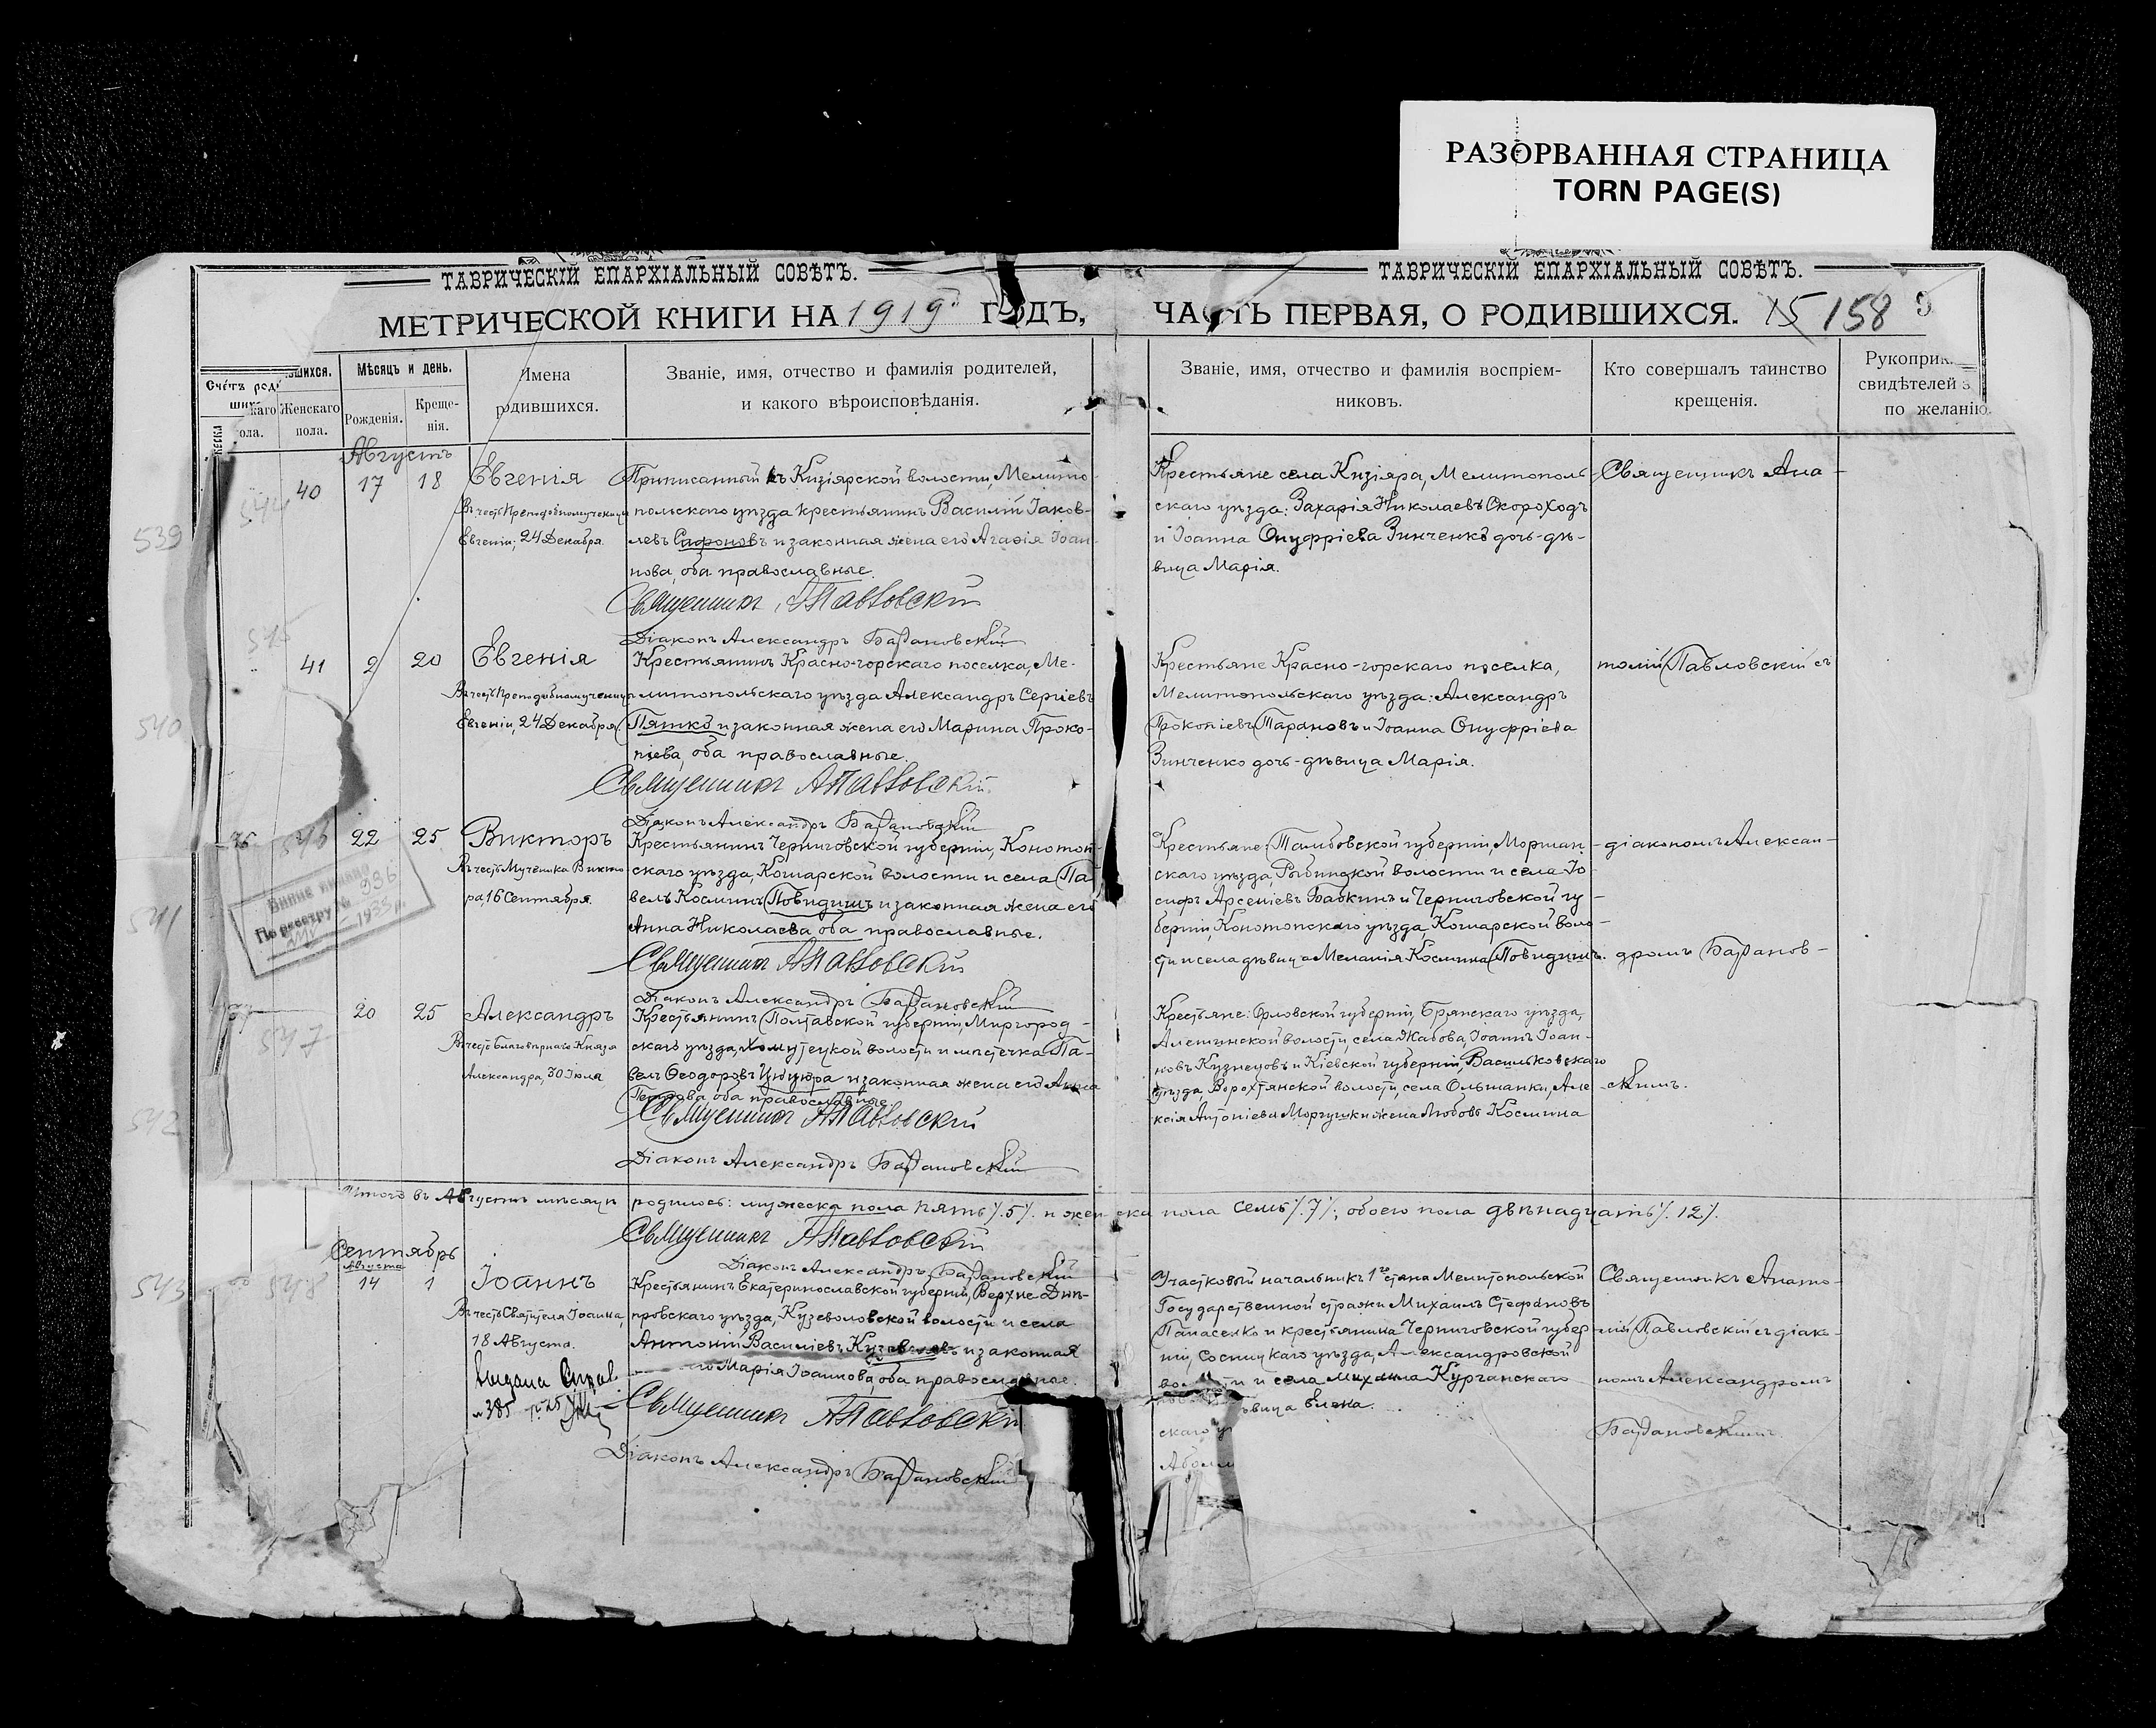 РАЗОРВАННАЯ СТРАНИЦА
TORN PAGE(S)
ТАВРИЧЕСКІЙ ЕПАРХІАЛЬНЫЙ СОВѢТЪ.
МЕТРИЧЕСКОЙ КНИГИ НА 1919 ГОДЪ,
Счетъ роди
вшихся.
Мѣсяцъ и день.
Имена
родившихся.
Званіе, имя, отчество и фамилія родителей,
и какого вѣроисповѣданія.
каго
пола.
Женскаго
пола.
Рожденія.
Креще-
нія.
Августъ
539
544
40 17 18 Евгенія
Въ честь Преподобномученицы
Евгеніи, 24 Декабря.
Приписанный къ Кизіярской волости, Мелито-
польскаго уѣзда крестьянинъ Василій Іаков-
левъ Сафоновъ и законная жена его Агафія Іоан-
нова, оба православные.
Священникъ А Павловскій
Діаконъ Александръ Баздановскій
540
545
41 2 20 Евгенія
Въ честь Преподобномученицы
Евгеніи, 24 Декабря.
Крестьянинъ Красно-горскаго поселка, Ме-
литопольскаго уѣзда Александръ Сергіевъ
Пятко и законная жена его Марина Проко-
піева, оба православные.
Священникъ А Павловскій
Діаконъ Александръ Баздановскій
541
546
22 25 Викторъ
Въ честь Мученика Викто
ра, 16 Сентября.
По реестру № 936
1935 г.
Крестьянинъ Черниговской губерніи, Конотоп-
скаго уѣзда, Кошарской волости и села Па-
велъ Косминъ Повидишъ и законная жена его
Анна Николаева, оба православные.
Священникъ А Павловскій
Діаконъ Александръ Баздановскій
542
547
20 25 Александръ
Въ честь Благовѣрнаго Князя
Александра, 30 Іюля
Крестьянинъ Полтавской губерніи, Миргород-
скаго уѣзда, Хомутецкой волости и мѣстечка Па-
велъ Ѳеодоровъ Цюцюра и законная жена его Анна
Петрова, оба православные
Священникъ А Павловскій
Діаконъ Александръ Баздановскій
Итого въ Августѣ мѣсяцѣ родилось: мужеска пола пять /.5/. и женска пола семь /.7/., обоего пола двѣнадцать /.12/.
Священникъ А Павловскій
Діаконъ Александръ Баздановскій
Сентябрь
Августа
543
548
14 1 Іоаннъ
Въ честь Святителя Іоанна,
18 Августа.
Выдана Справ
№ 385
Крестьянинъ Екатеринославской губерніи, Верхне Днѣ-
провскаго уѣзда, Кузеволовской волости и села
Антоній Василіевъ и законная
его Марія Іоаннова, оба православные.
Священникъ А Павловскій
Діаконъ Александръ Баздановскій
ТАВРИЧЕСКІЙ ЕПАРХІАЛЬНЫЙ СОВѢТЪ.
ЧАСТЬ ПЕРВАЯ, О РОДИВШИХСЯ. 15 158
Званіе, имя, отчество и фамилія воспріем-
никовъ.
Кто совершалъ таинство
крещенія.
Рукоприк
свидѣтелей з
по желанію.
Крестьяне села Кизіяра, Мелитополь-
скаго уѣзда: Захарія Николаевъ Скороходъ
и Іоанна Онуфріева Зинченко дочь-дѣ-
вица Марія.
Священникъ Ана-
Крестьяне Красно-горскаго поселка,
Мелитопольскаго уѣзда: Александръ
Прокопіевъ Тарановъ и Іоанна Онуфріева
Зинченко дочь-дѣвица Марія.
толій Павловскій съ
Крестьяне: Тамбовской губерніи, Моршан-
скаго уѣзда, Рыбинской волости и села Іо-
сифъ Арсеніевъ Бабкинъ и Черниговской гу-
берніи, Конотопскаго уѣзда, Кошарской воло-
сти и села дѣвица Меланія Космина Повидишъ.
діакономъ Алексан-
дромъ Баздановскимъ.
Крестьяне: Орловской губерніи, Брянскаго уѣзда,
Алешинской волости, села Жабова, Іоаннъ Іоан-
новъ Кузнецовъ и Кіевской губерніи, Васильковскаго
уѣзда, Ворохтянской волости, села Ольшанки, Але-
ксія Антоніева жена Любовь Космина
Участковый начальникъ 1го стана Мелитопольской
Государственной стражи Михаилъ Стефановъ
Панасенко и крестьянина Черниговской губер-
ніи, Сосницкаго уѣзда, Александровской
и села Михаила Курганскаго
вица Елена.
Священникъ Анато-
лій Павловскій съ діако-
номъ Александромъ
Баздановскимъ.